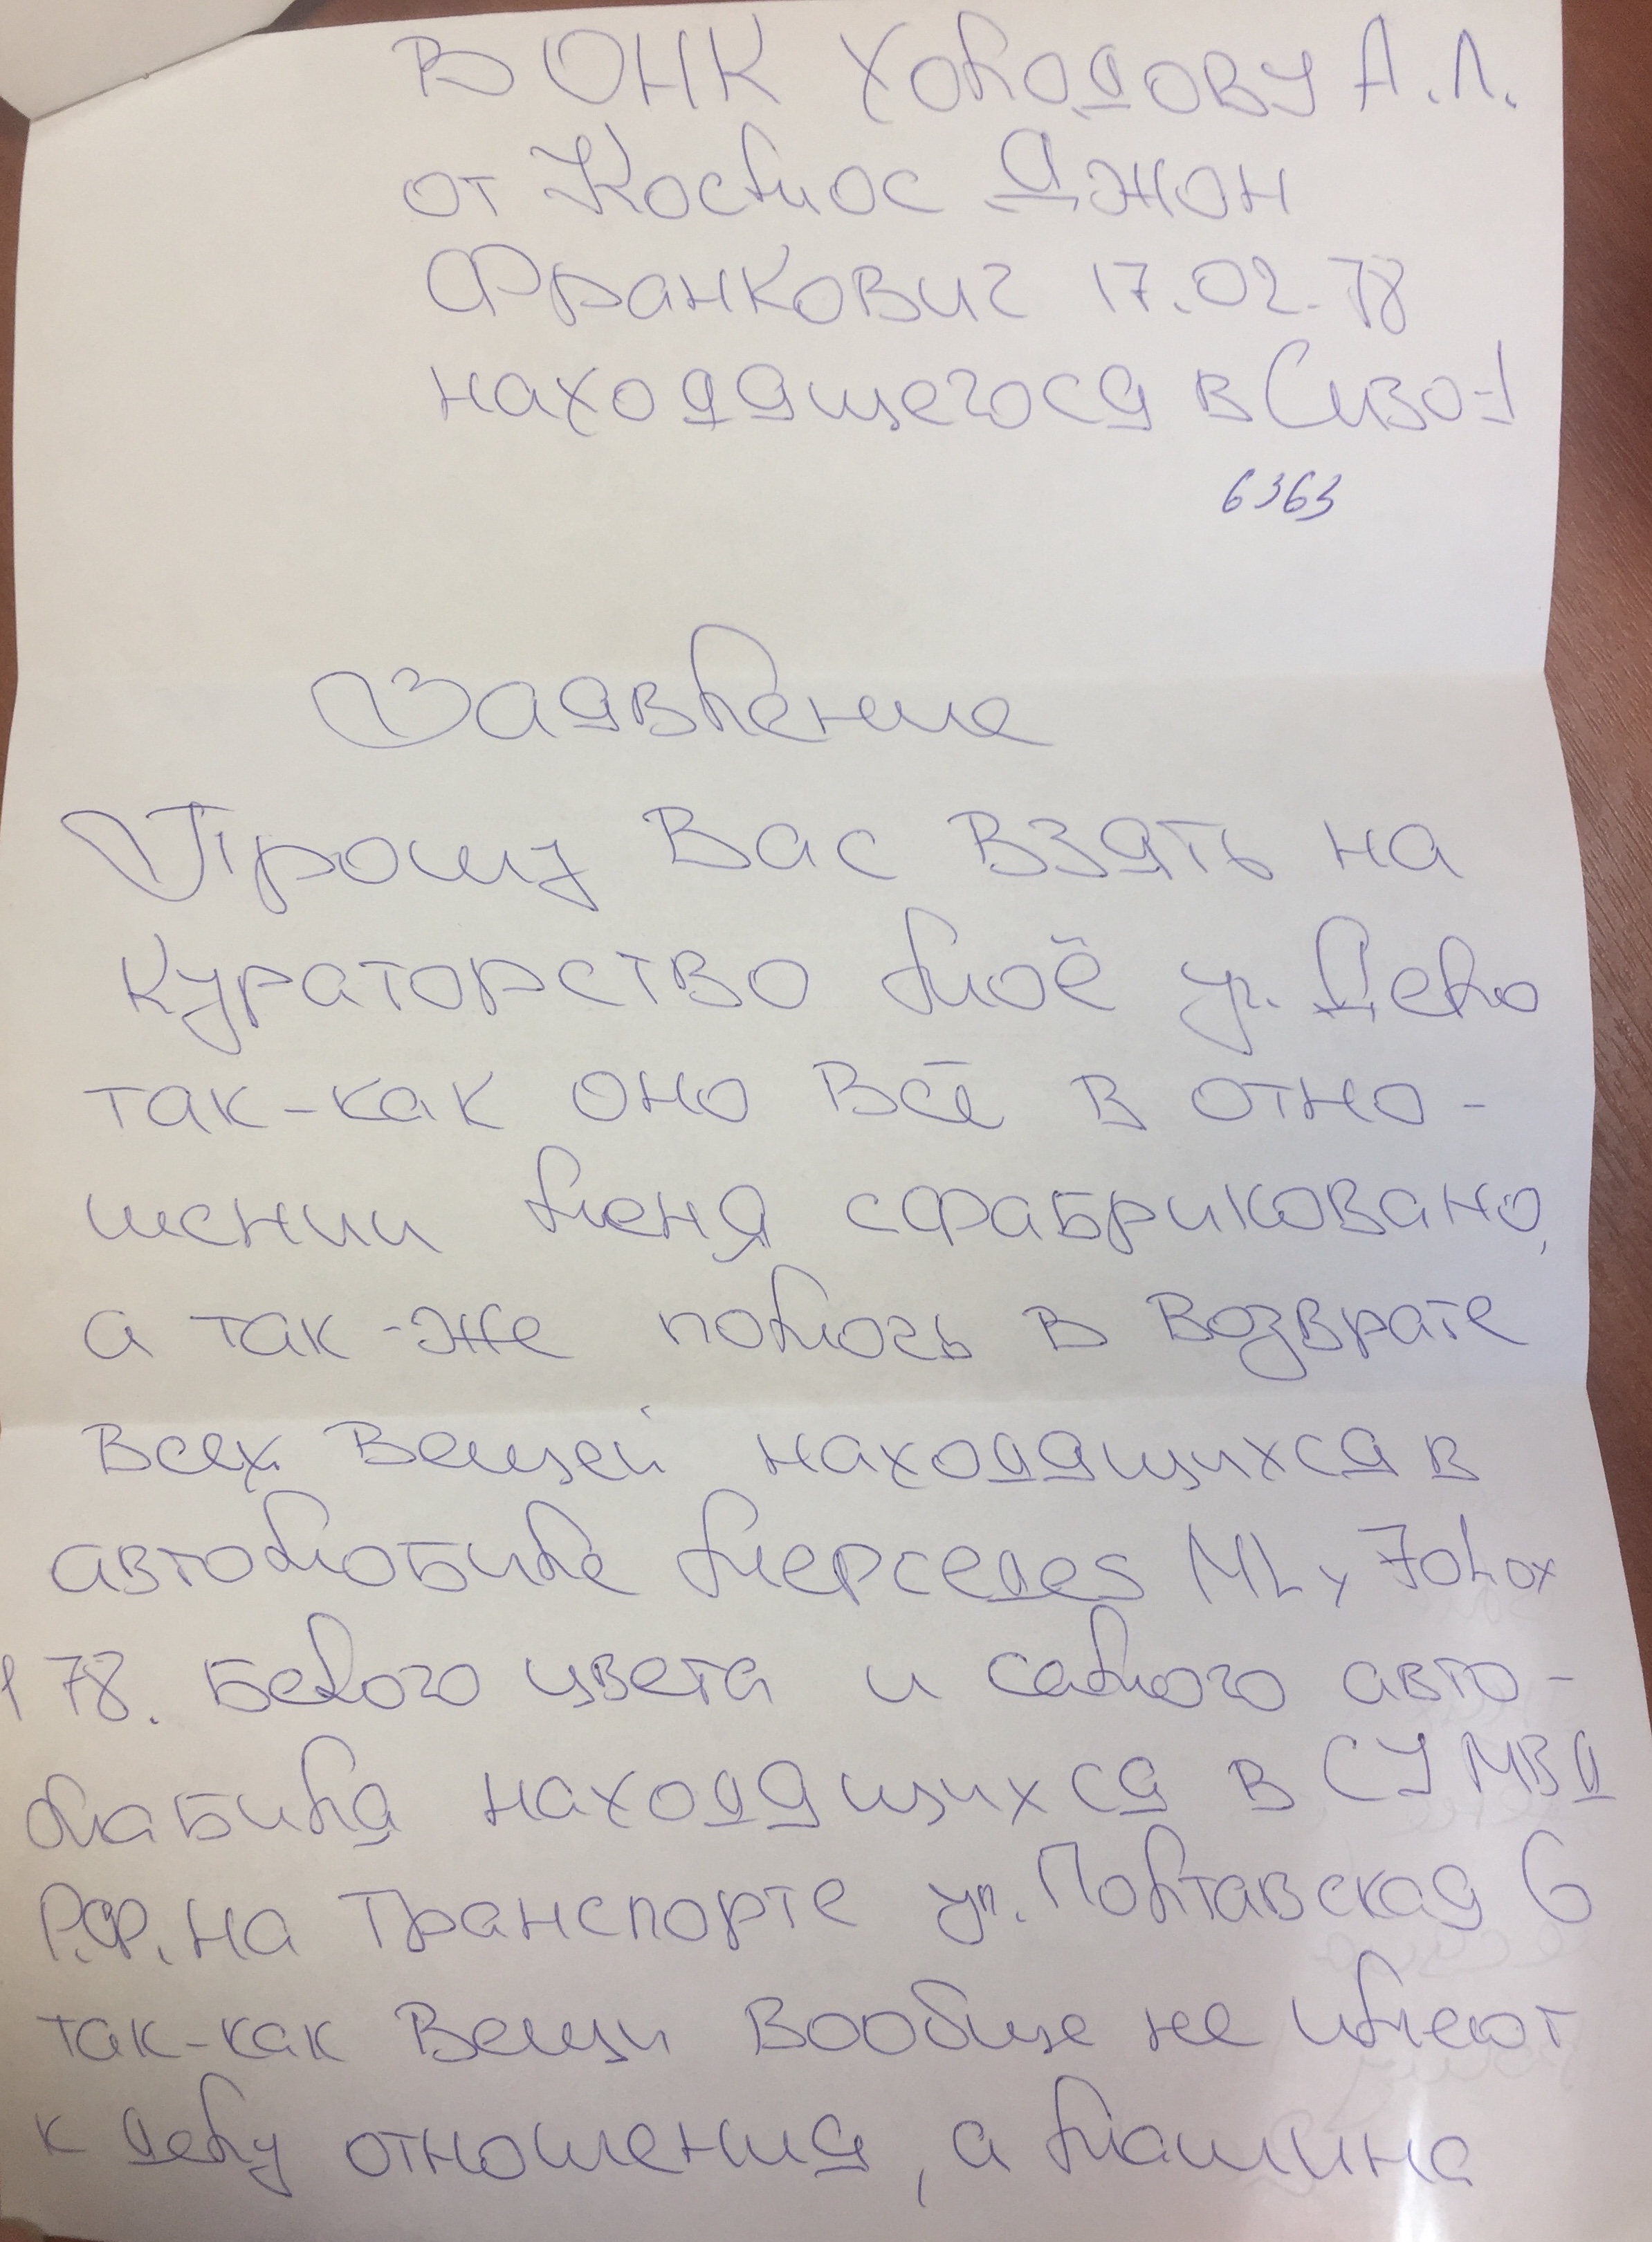 В ОНК Холодову А.Л.
от Космос Джон
Франкович 17.02.78
находящегося в Сизо-1
6363
Заявление
Прошу Вас взять на
кураторство моё уг. Дело
так-как оно всё в отно-
шении меня сфабриковано,
а так-же помочь в возврате
всех вещей находящихся в
автомобиле мерседес ML
178. Белого цвета и самого авто-
мабиля находящихся в СУ МВД
Р.Ф. на Транспорте ул. Полтавская 6
так-как вещи вообще не имеют
к делу отношения, а машина